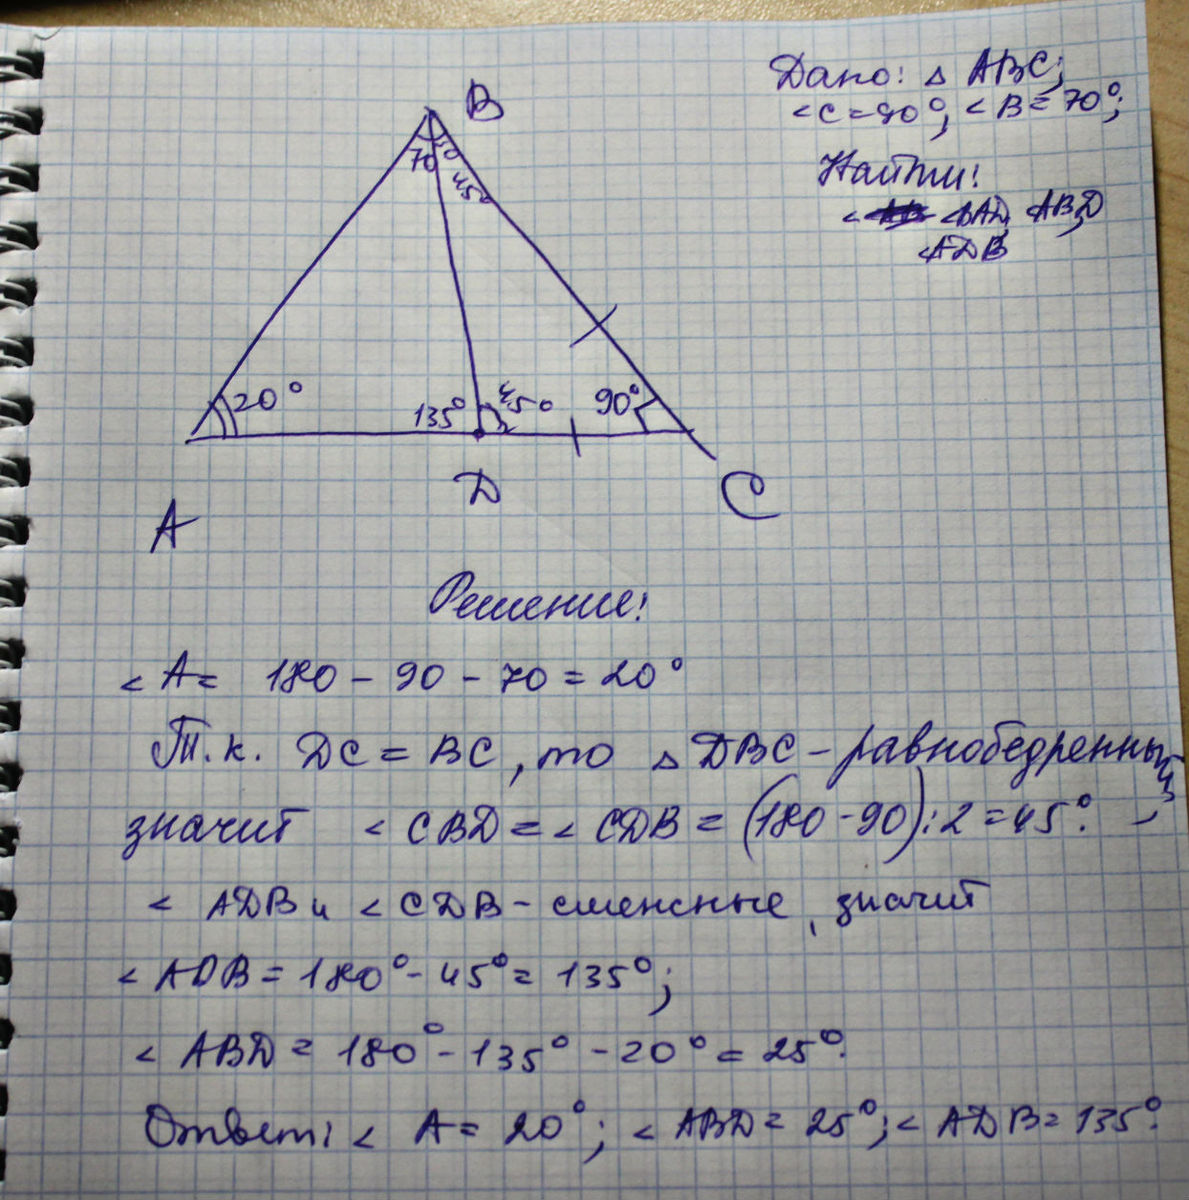 Дано: △ ABC;
∠C=90°, ∠B=70°;
Найти:
∠BAD, ∠ABD
∠ADB
B
70°
45°
20°
135°
45°
90°
A
D
C
Решение:
∠A = 180 - 90 - 70 = 20°
Т.к. DC = BC, то △ DBC - равнобедренный,
значит ∠CBD = ∠CDB = (180-90):2 = 45°.
∠ADB и ∠CDB - смежные, значит
∠ADB = 180° - 45° = 135°;
∠ABD = 180° - 135° - 20° = 25°.
Ответ: ∠A = 20°; ∠ABD = 25°; ∠ADB = 135°.